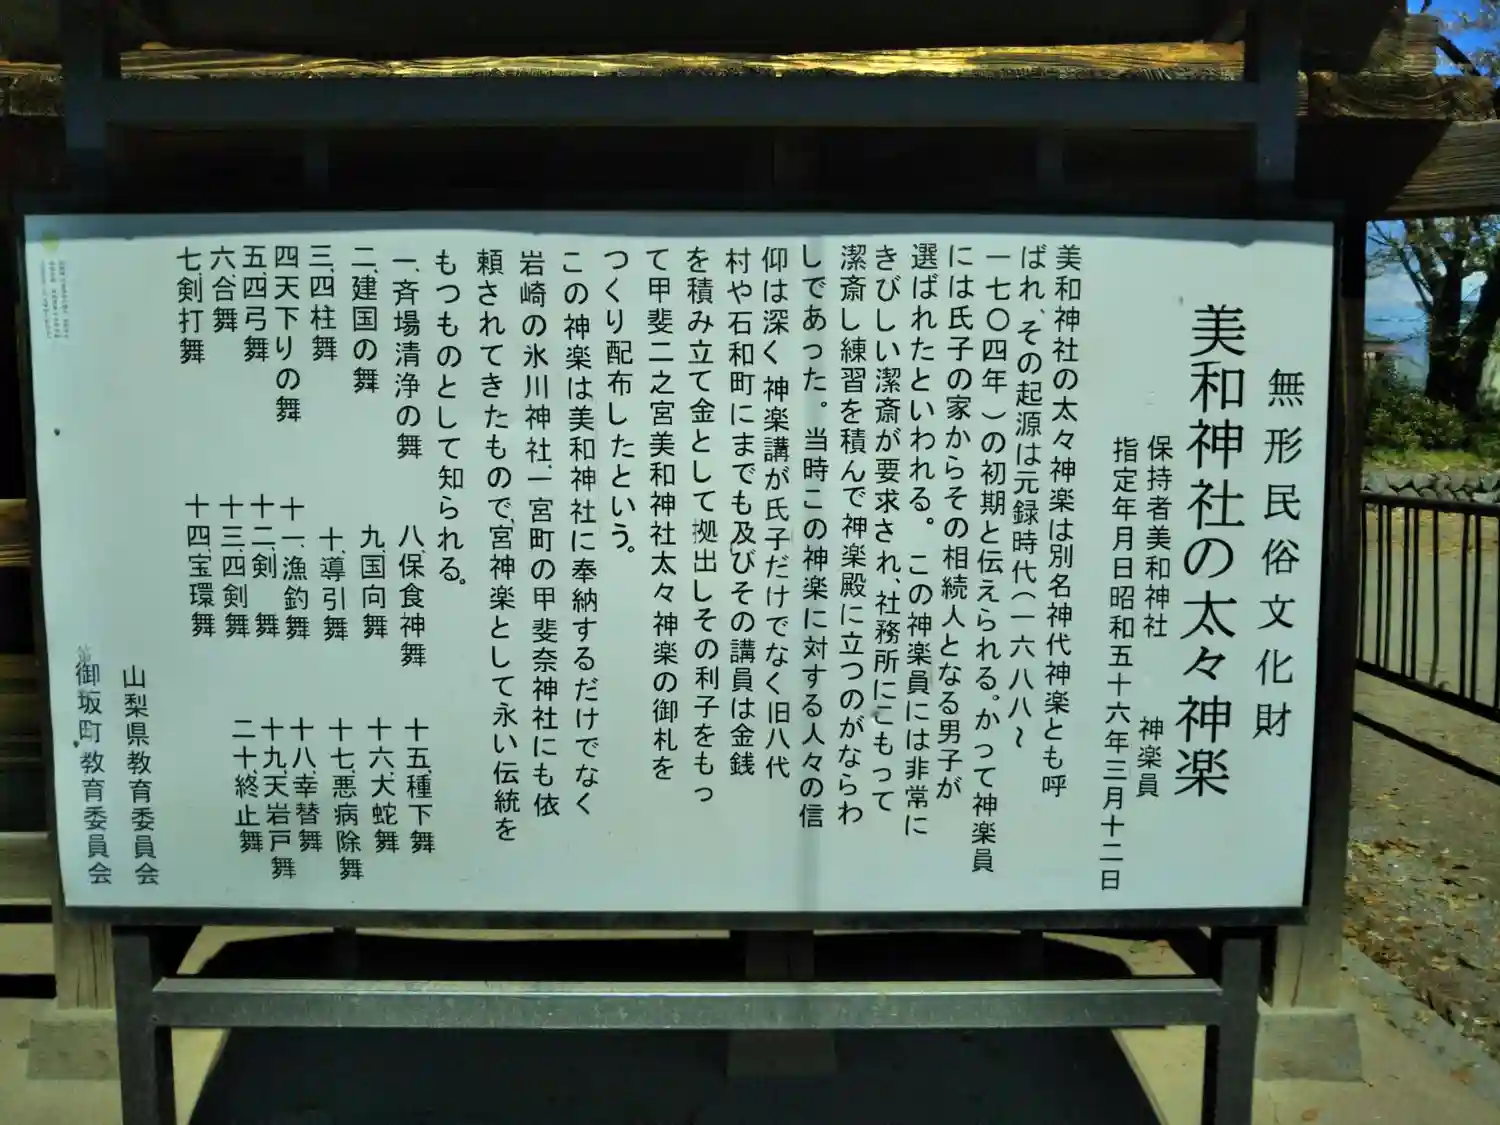 無形民俗文化財
美和神社の太々神楽
保持者美和神社　神楽員
指定年月日昭和五十六年三月十二日
美和神社の太々神楽は別名神代神楽とも呼
ばれ、その起源は元録時代(一六八八～
一七〇四年)の初期と伝えられる。かって神楽員
には氏子の家からその相続人となる男子が
選ばれたといわれる。この神楽員には非常に
きびしい潔斎が要求され、社務所にこもって
潔斎し練習を積んで神楽殿に立つのがならわ
しであった。当時この神楽に対する人々の信
仰は深く神楽講が氏子だけでなく旧八代
村や石和町にまでも及びその講員は金銭
を積み立て金として拠出しその利子をもっ
て甲斐二之宮美和神社太々神楽の御札を
つくり配布したという。
この神楽は美和神社に奉納するだけでなく
岩崎の氷川神社、一宮町の甲斐奈神社にも依
頼されてきたもので、宮神楽として永い伝統を
もつものとして知られる。
一、斉場清浄の舞
二、建国の舞
三、四柱舞
四天下りの舞
五、四弓舞
六、合舞
七、剣打舞
八、保食神舞
九、国向舞
十、導引舞
十一、漁釣舞
十二、剣　舞
十三、四剣舞
十四、宝環舞
十五、種下舞
十六、犬蛇舞
十七、悪病除舞
十八、幸替舞
十九、天岩戸舞
二十、終止舞
山梨県教育委員会
御坂町教育委員会